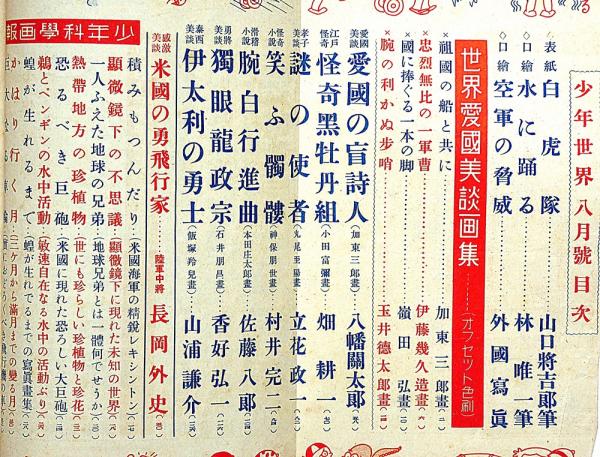 少年世界 八月號目次
表紙 白虎隊 山口將吉郎筆
口繪 水に踊る 林唯一筆
口繪 空軍の脅威 外國寫眞
世界愛國美談画集……(オフセット色刷)
祖國の船と共に 加東三郎畫
忠烈無比の一軍曹 伊藤幾久造畫
國に捧ぐる一本の脚 嶺田弘畫
腕の利かぬ步哨 玉井德太郎畫
愛國美談 愛國の盲詩人 (加東三郎畫) 八幡關太郎
江戸怪奇 怪奇黑牡丹組 (小田富彌畫) 畑耕一
孝子美談 謎の使者 立花政一
怪奇小說 笑ふ髑髏 (神保朋世畫) 村井完二
滑稽小說 腕白行進曲 (本田庄太郎畫) 佐藤八郎
勇將美談 獨眼龍政宗 (石井朋昌畫) 香好弘一
泰西美談 伊太利の勇士 (飯塚羚兒畫) 山浦謙介
感激美談 米國の勇飛行家 陸軍中將 長岡外史
少年科學画報
積みもつんだり (米國海軍の精銳レキシントン)
顯微鏡下の不思議 (顯微鏡下に現れた未知の世界)
一人ふえた地球の兄弟 (地球兄弟とは一體何でせうか)
熱帶地方の珍植物 (世にも珍らしい珍植物と珍花)
恐るべき巨砲 (米國に現れた恐ろしい大巨砲)
鵜とペンギンの水中活動 (敏速自在なる水中の活動ぶり)
蝗が生れるまで (蝗が生れでるまでの寫眞畫集)
かはり行く月 (三ケ月から滿月までの變る月)